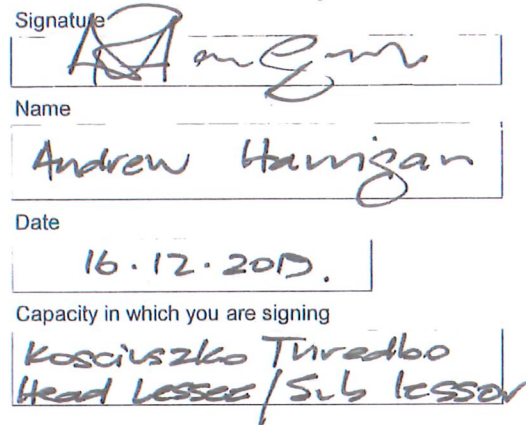 Signature
Name
Andrew Harrigan
Date
16.12.2019.
Capacity in which you are signing
Kosciuszko Thredbo
Head Lessee/Sub lessor